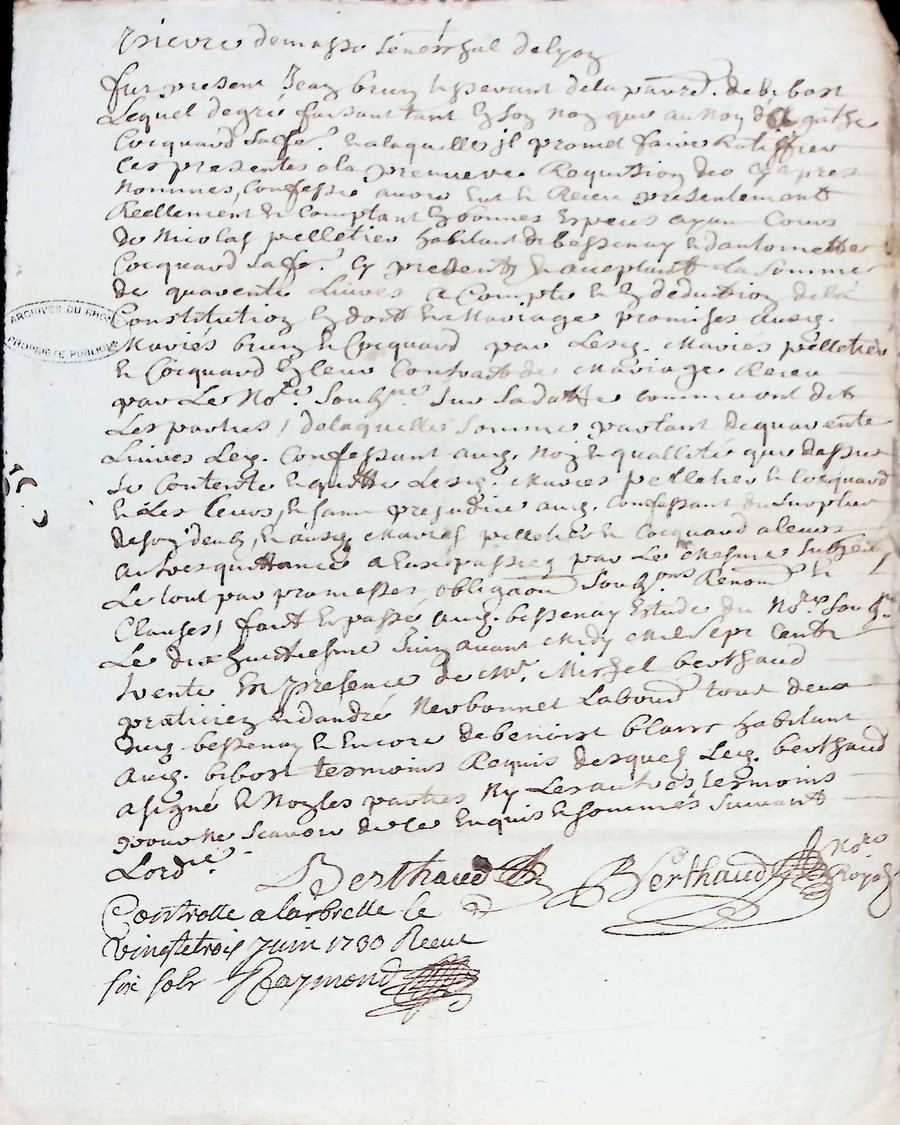 Pierre demasso senechal de lyon
fut present Jean brun
Lequel de gré faisant tant En son Nom que au Nom d'Agathe
Cocquard sa fe. a laquelle il promet faire Ratiffier
Ces presentes a la premiere Requisition des Cyapres
Nommes, Confesse avoir Eut et Receu presentement
Reellement et Comptant En bonnes Especes ayan Cours
de Nicolas pelletier habitant de bessenay et dantoinette
Cocquard sa fe. Cy presents et acceptant La Somme
de quarente Livres a Compte et En deduction de la
Constitution En dott et Mariage promises ausd.
Mariés brun et Cocquard par Lesd. Mariés pelletier
et Cocquard En leur Contract de Mariage Receu
par Le Nore. Soubne. Sur sa datte comme ont dit
Les parties, de laquelle Somme partant de quarente
Livres Led. Confessant aud. Nom et quallité que dessus
Se Contente et quitte Lesd. Mariés pelletier et Cocquard
et Les leurs, et sans prejudice aud. Confessant du Surplus
de son deub, et ausd. Mariés pelletier et Cocquard a leurs
autres quittances a Eux passées par Le mesme Subject
Le tout par promesses, obligaon Soubmons Renom et
Clauses, fait et passé aud. bessenay Estude du Nore. Soubne.
Le dix huictiesme Juin avant Midy Mil Sept Cents
trente En presence de Me. Michel berthaud
praticien et dandré Nerbonnet Laboure tous deux
dud. bessenay et Encore de benoist blanc habitant
aud. bibost tesmoins Requis desquels Led. berthaud
a signé et Non les parties Ny Les autres tesmoins
pour Ne Scavoir de ce Enquis et Sommés Suivant
Lordce.
Berthaud
Berthaud Nore Royal
Controlle a larbrelle le
vingt et trois Juin 1730 Receu
six sols Raymond
ARCHIVES DU RHONE
PROPRIETE PUBLIQUE